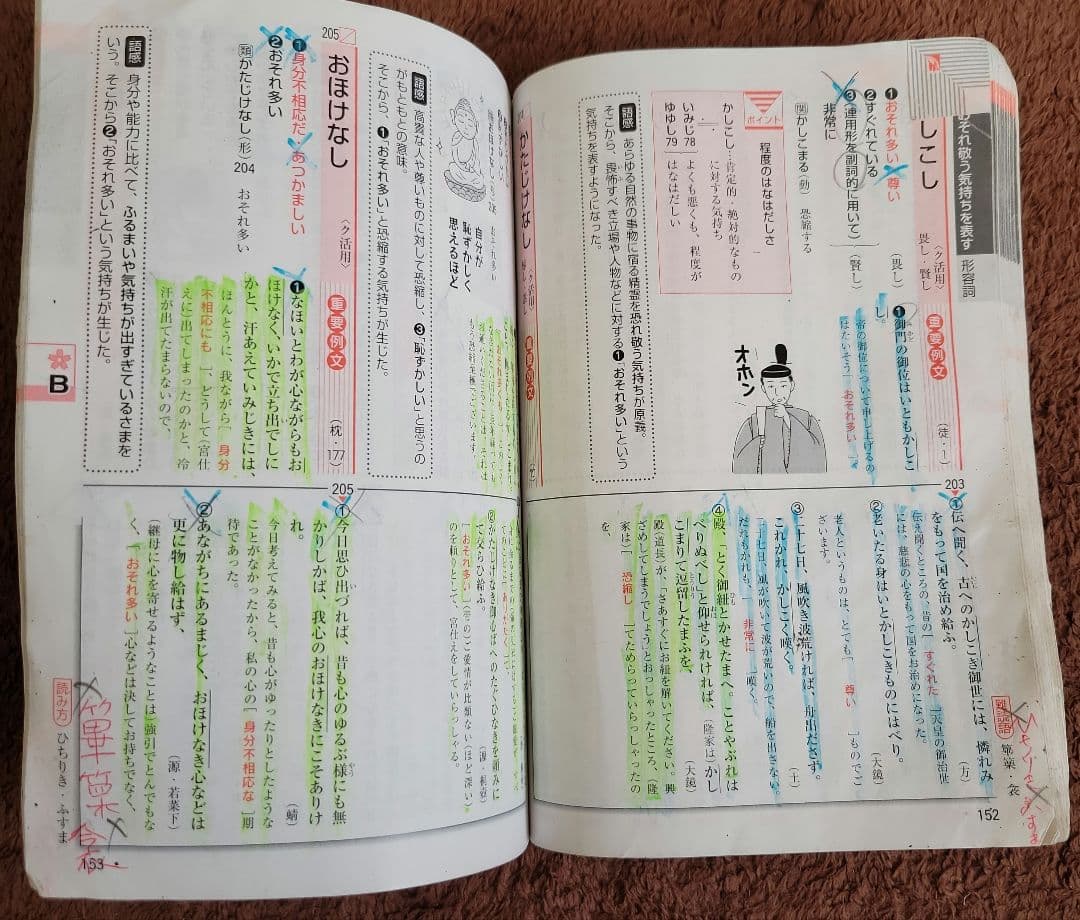 おそれ敬う気持ちを表す 形容詞
しこし
畏し・賢し
〈ク活用〉
❶おそれ多い・尊い
(畏し)
❷すぐれている
❸(連用形を副詞的に用いて)
非常に
(賢し)
関かしこまる(動) 恐縮する
ポイント
程度のはなはだしさ
かしこし…肯定的・絶対的なもの
に対する気持ち
いみじ78
ゆゆし79
よくも悪くも、程度が
はなはだしい
語感
あらゆる自然の事物に宿る精霊を恐れ敬う気持ちが原義。
そこから、畏怖すべき立場や人物などに対する❶「おそれ多い」という
気持ちを表すようになった。
重要例文
❶御門の御位はいともかしこ
し。
(徒・1)
帝の御位について申し上げるの
はたいそう[おそれ多い]
オホン
203
①伝へ聞く、古へのかしこき御世には、憐れみ
をもつて国を治め給ふ。
(方)
伝え聞くところの、昔の[すぐれた]天皇の御治世
には、慈悲の心をもって国をお治めになった。
②老いたる身はいとかしこきものにはべり。
(大鏡)
老人というものは、とても[尊い]ものでご
ざいます。
③二十七日、風吹き波荒ければ、舟出ださず。
これかれ、かしこく嘆く。
(土)
二十七日、風が吹いて波が荒いので、船を出さない。
だれもかれも、[非常に]嘆く。
④殿、「とく御紐とかせたまへ。ことやぶれは
べりぬべし」と仰せられければ、(隆家は)かし
こまりて逗留したまふを、
(大鏡)
殿(道長)が、「さあすぐにお紐を解いてください。興
ざめしてしまうでしょう」とおっしゃったところ、(隆
家は)[恐縮し]てためらっていらっしゃったの
を、
難読語
篳篥・衾
152
かたじけなし
〈ク活用〉
自分が
恥ずかしく
思えるほど
語感
高貴な人や尊いものに対して恐縮し、❸「恥ずかしい」と思うの
がもともとの意味。
そこから、❶「おそれ多い」と恐縮する気持ちが生じた。
②かたじけなき御心ばへのたぐひなきを頼みに
て交らひ給ふ。
(源・桐壺)
[おそれ多い](帝の)ご愛情が比類ない(ほど深い)
のを頼りとして、宮仕えをしていらっしゃる。
205
おほけなし
〈ク活用〉
❶身分不相応だ・あつかましい
❷おそれ多い
類かたじけなし(形)204 おそれ多い
語感
身分や能力に比べて、ふるまいや気持ちが出すぎているさまを
いう。そこから❷「おそれ多い」という気持ちが生じた。
重要例文
❶なほいとわが心ながらもお
ほけなく、いかで立ち出でしに
かと、汗あえていみじきには、
(枕・177)
ほんとうに、我ながら[身分
不相応にも]、どうして(宮仕
えに)出てしまったのかと、冷
汗が出てたまらないので、
205
①今日思ひ出づれば、昔も心のゆるぶ様にも無
かりしかば、我心のおほけなきにこそありけ
れ。
(蜻)
今日考えてみると、昔も心がゆったりとしたような
ことがなかったから、私の心の[身分不相応な]期
待であった。
②あながちにあるまじく、おほけなき心などは
更に物し給はず、
(源・若菜下)
(継母に心を寄せるようなことは)強引でとんでもな
く、[おそれ多い]心などは決してお持ちでなく、
読み方
ひちりき・ふすま
篳篥
B
153